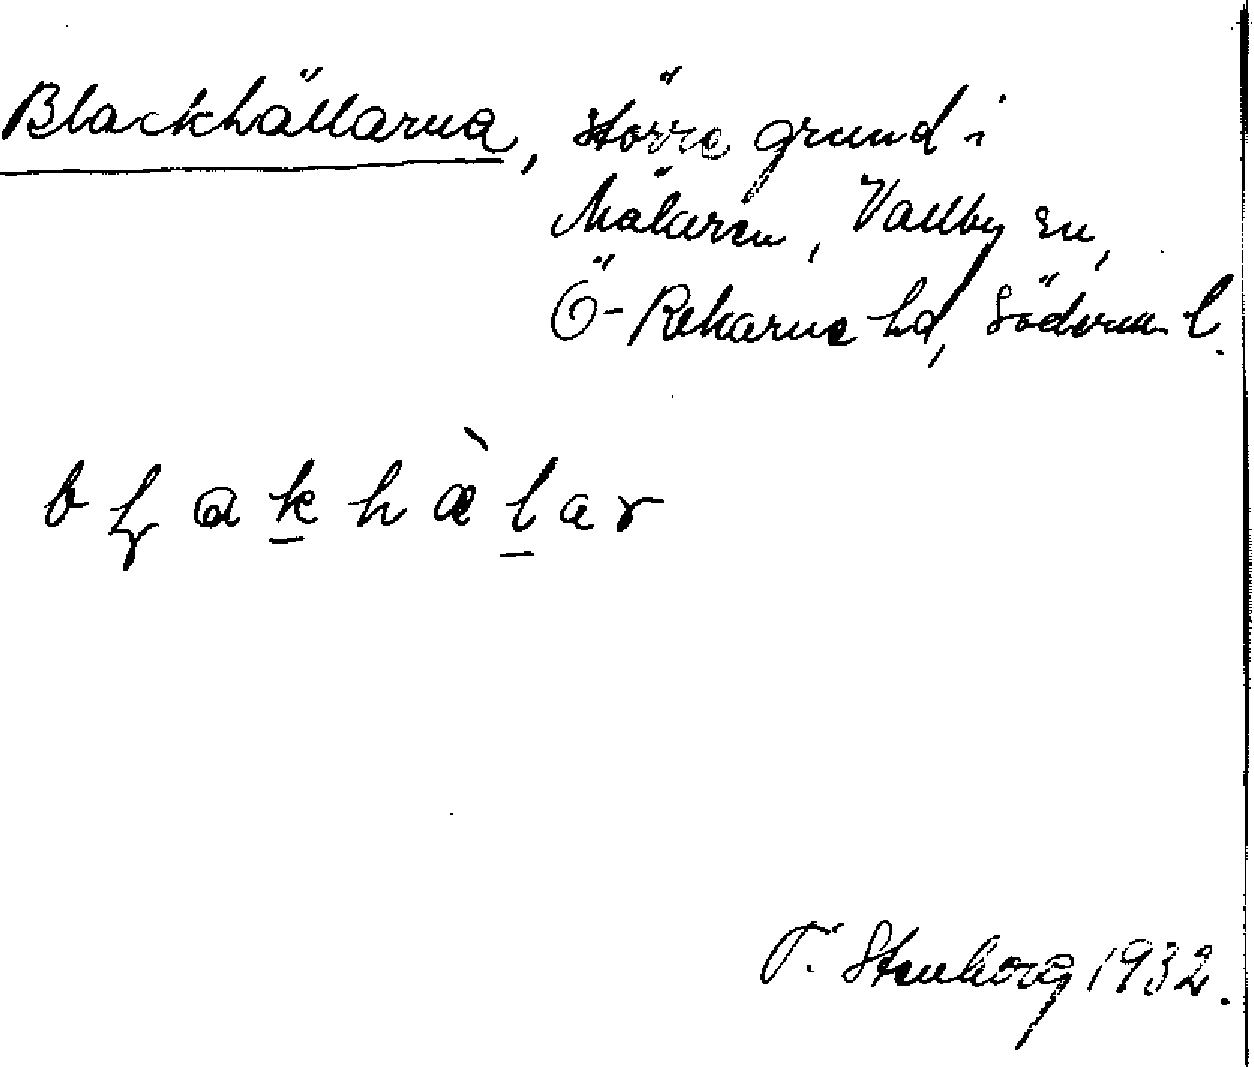 Blackhällarna, större grund i
Mälaren, Vallby sn,
Ö-Rekarne hd, Söderm. l.
bɭakhæ̀lar
T. Stenborg 1932.